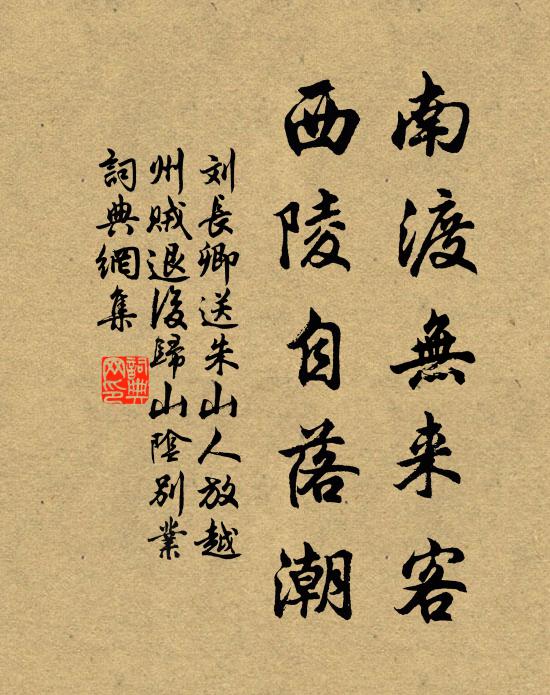 南渡無来客
西陵自落潮
刘長卿送朱山人放越
州賊退後歸山陰別業
詞典網集
詞典网印